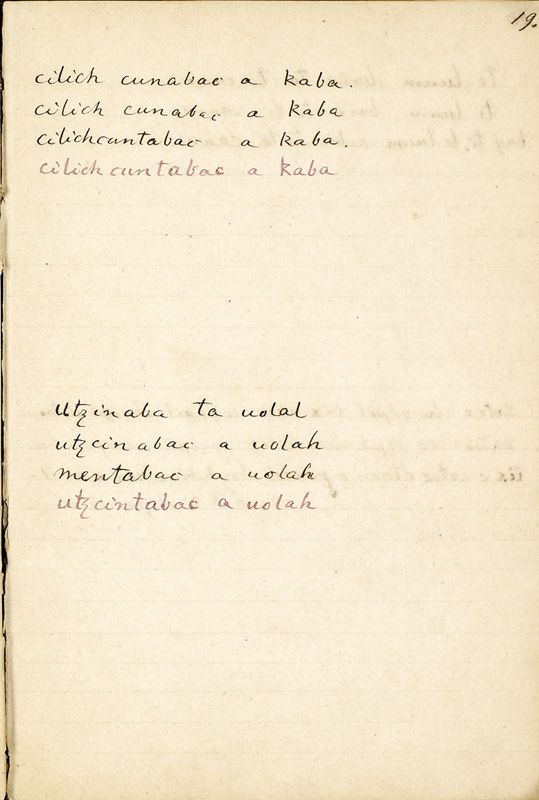 19.
cilich cunabac a kaba.
cilich cunabac a kaba
cilichcuntabac a kaba.
cilich cuntabac a kaba
utꜩinaba ta uolal
utꜩcinabac a uolah
mentabac a uolah
utꜩcintabac a uolah